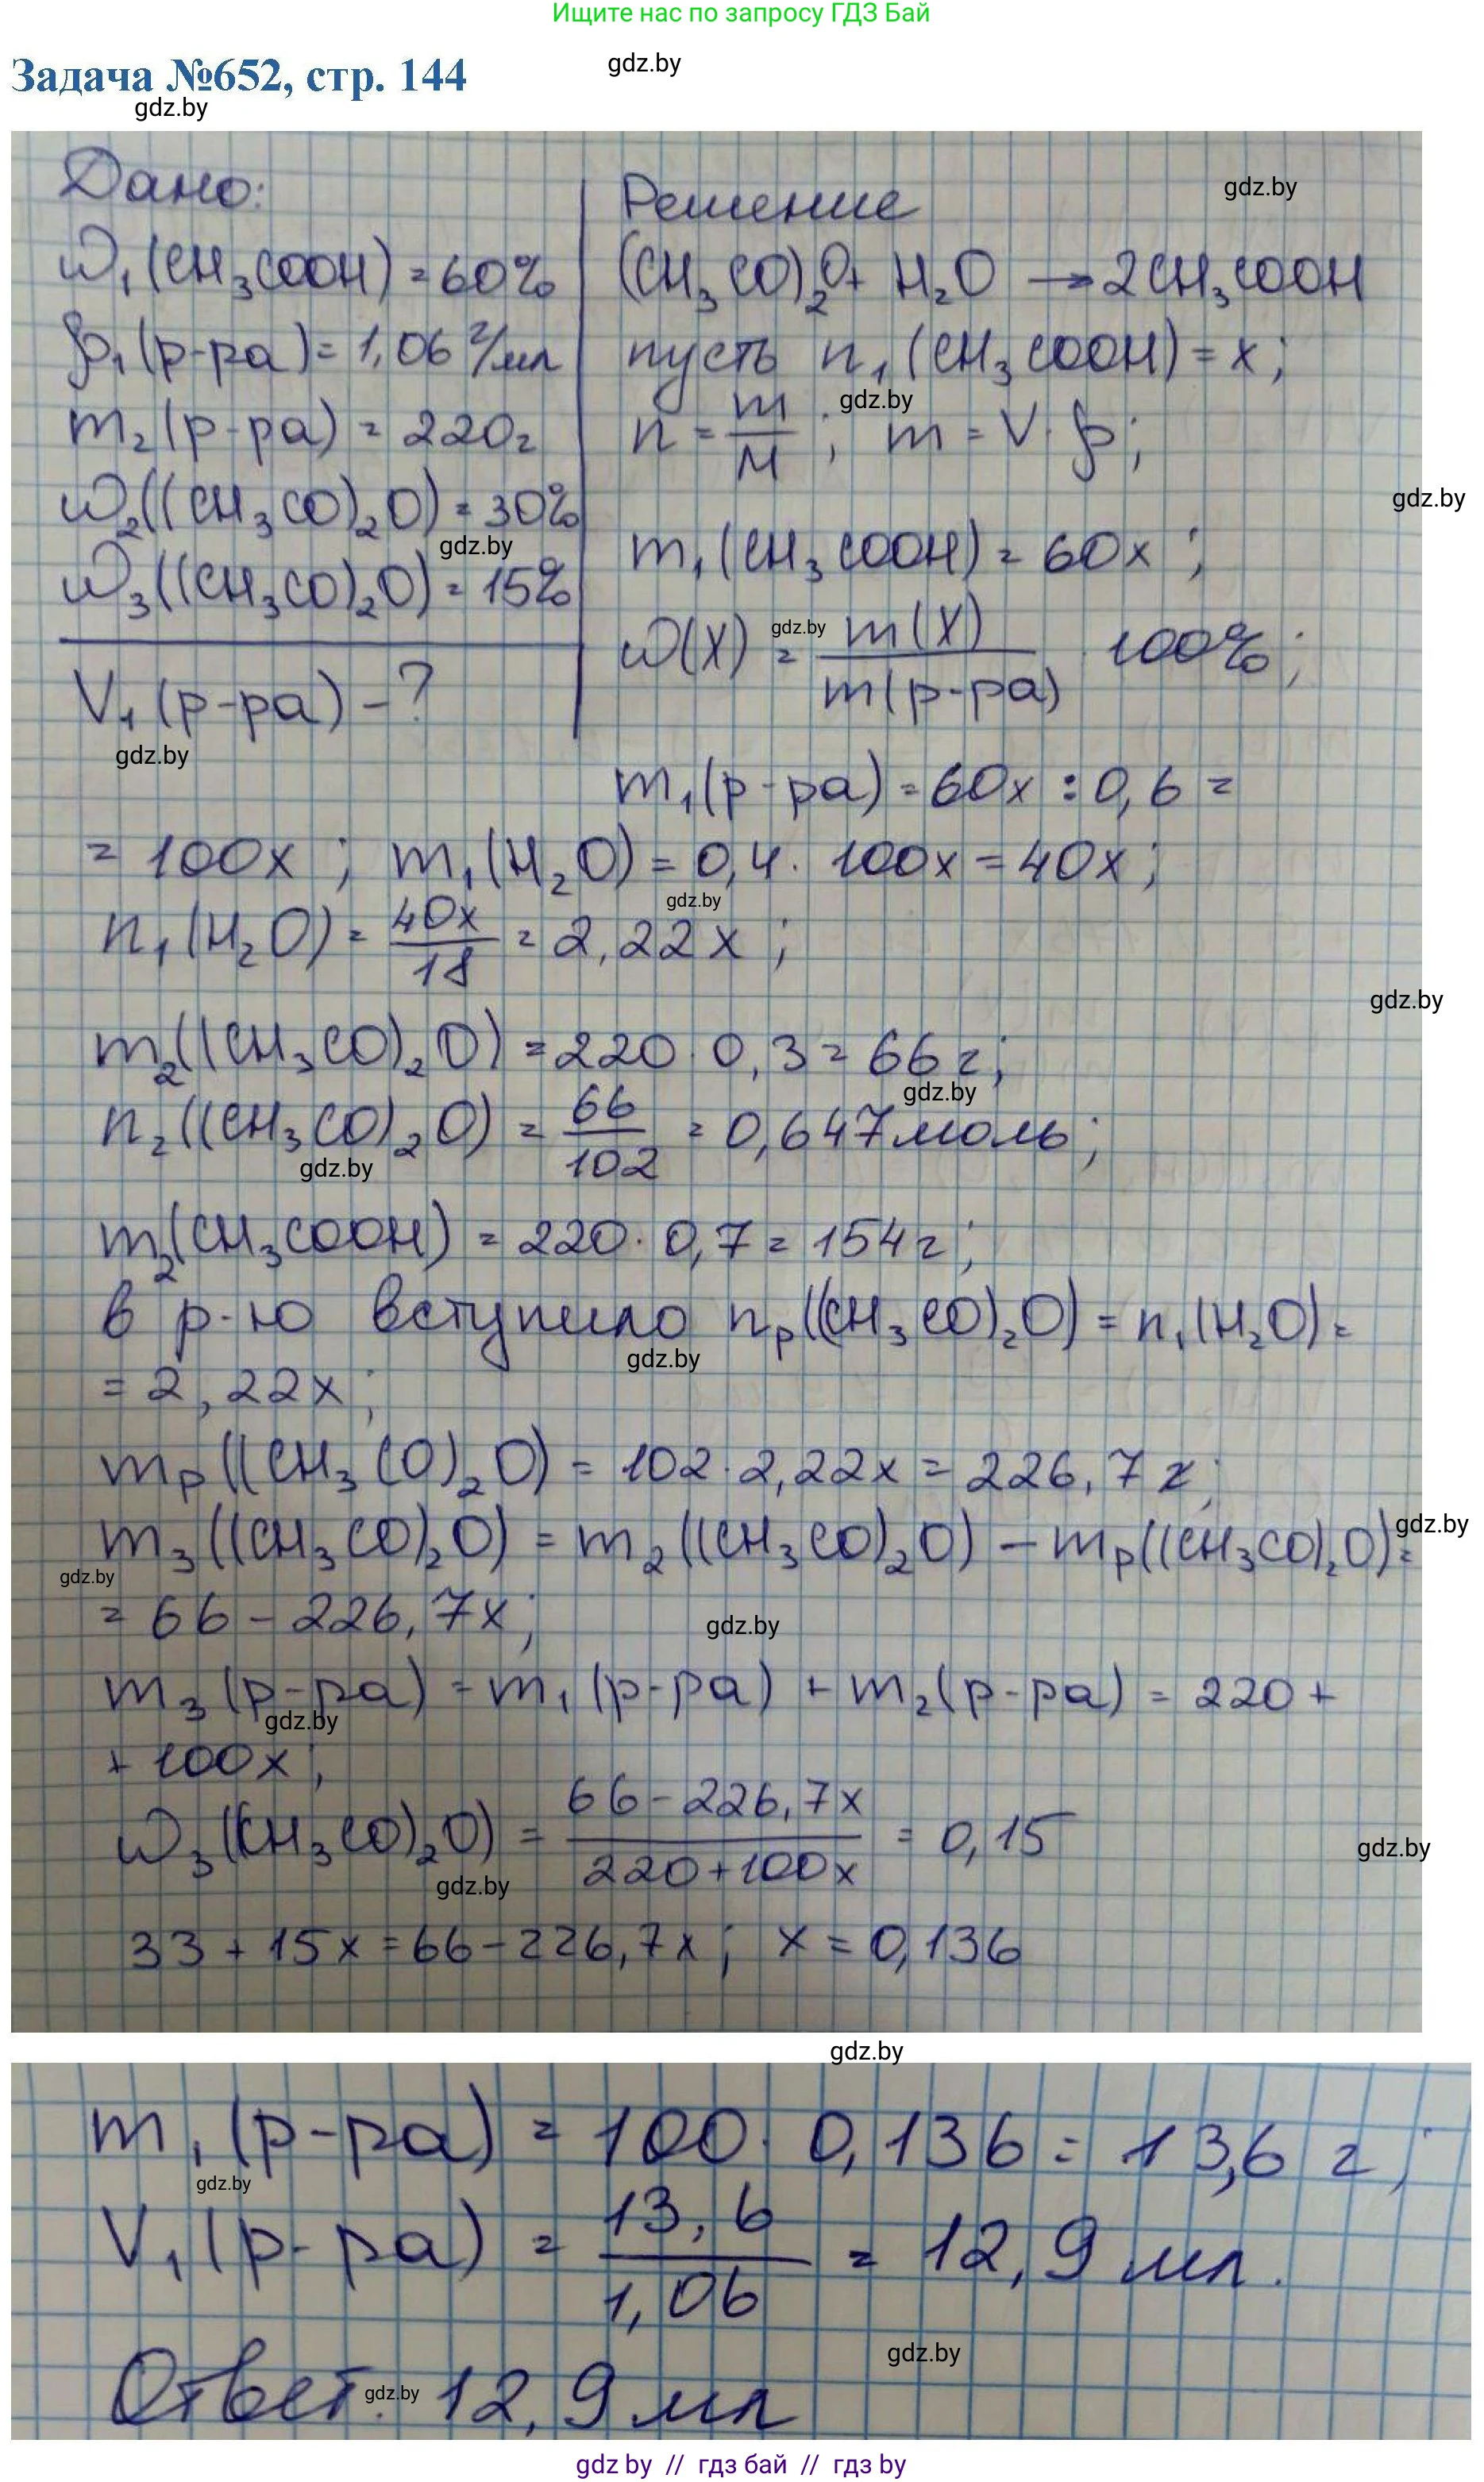 Ищите нас по запросу ГДЗ Бай
Задача №652, стр. 144
gdz.by
gdz.by
Дано:
ω₁(CH₃COOH) = 60%
ρ₁(р-ра) = 1,06 г/мл
m₂(р-ра) = 220г
ω₂((CH₃CO)₂O) = 30%
gdz.by
ω₃((CH₃CO)₂O) = 15%
V₁(р-ра) - ?
gdz.by
Решение
gdz.by
(CH₃CO)₂O + H₂O → 2CH₃COOH
пусть n₁(CH₃COOH) = x;
gdz.by
n = m/M ; m = V · ρ;
gdz.by
m₁(CH₃COOH) = 60x ;
ω(X) = m(X)/m(р-ра) · 100% ;
gdz.by
m₁(р-ра) = 60x : 0,6 =
= 100x ; m₁(H₂O) = 0,4 · 100x = 40x ;
gdz.by
n₁(H₂O) = 40x/18 = 2,22x ;
gdz.by
gdz.by
m₂((CH₃CO)₂O) = 220 · 0,3 = 66г;
gdz.by
n₂((CH₃CO)₂O) = 66/102 = 0,647моль;
gdz.by
m₂(CH₃COOH) = 220 · 0,7 = 154г;
в р-ю вступило nₚ((CH₃CO)₂O) = n₁(H₂O) =
gdz.by
= 2,22x;
mₚ((CH₃CO)₂O) = 102 · 2,22x = 226,7x;
gdz.by
m₃((CH₃CO)₂O) = m₂((CH₃CO)₂O) - mₚ((CH₃CO)₂O) =
gdz.by
= 66 - 226,7x;
gdz.by
m₃(р-ра) = m₁(р-ра) + m₂(р-ра) = 220 +
gdz.by
+ 100x ;
ω₃((CH₃CO)₂O) = 66 - 226,7x/220 + 100x = 0,15
gdz.by
gdz.by
33 + 15x = 66 - 226,7x ; x = 0,136
gdz.by
m₁(р-ра) = 100 · 0,136 = 13,6 г;
gdz.by
V₁(р-ра) = 13,6/1,06 = 12,9 мл.
gdz.by
Ответ: 12,9 мл
gdz.by
gdz by // гдз бай // гдз by